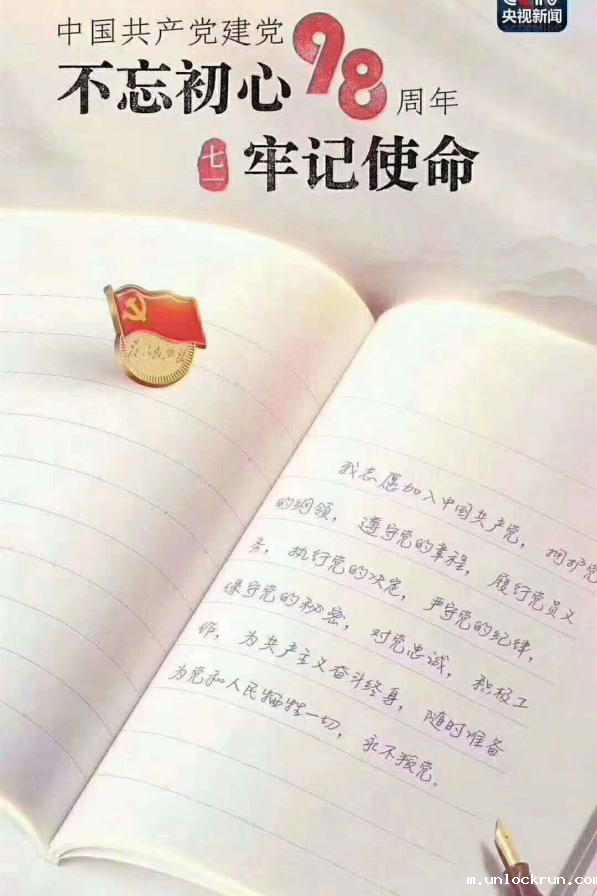 CCTV
央视新闻
中国共产党建党98周年
不忘初心
七一
牢记使命
为人民服务
我志愿加入中国共产党，拥护党
的纲领，遵守党的章程，履行党员义
务，执行党的决定，严守党的纪律，
保守党的秘密，对党忠诚，积极工
作，为共产主义奋斗终身，随时准备
为党和人民牺牲一切，永不叛党。
m.unlockrun.com